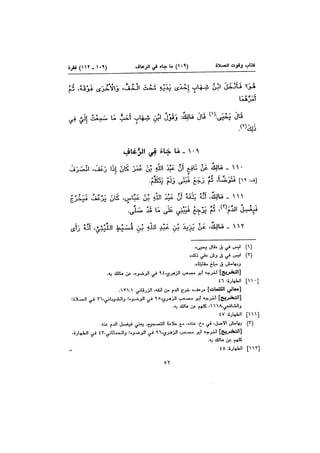 كتاب وقوت الصلاة (١٠٩) ما جاء في الرعاف (١٠٩ - ١١٢) فقرة
هُوَ؟ فَأَدْخَلَ ابْنُ شِهَابٍ إِحْدَى يَدَيْهِ تَحْتَ الْخُفِّ، وَالْأُخْرَى فَوْقَهُ، ثُمَّ
أَمَرَّهُمَا
قَالَ يَحْيَى(١) قَالَ مَالِكٌ: وَقَوْلُ ابْنِ شِهَابٍ أَحَبُّ مَا سَمِعْتُ إِلَيَّ فِي
ذَلِكَ(٢).
١٠٩ - مَا جَاءَ فِي الرُّعَافِ
١١٠ - مَالِكٌ عَنْ نَافِعٍ أَنَّ عَبْدَ اللَّهِ بْنَ عُمَرَ كَانَ إِذَا رَعَفَ، انْصَرَفَ
[ف: ١٢] فَتَوَضَّأَ، ثُمَّ رَجَعَ فَبَنَى وَلَمْ يَتَكَلَّمْ.
١١١ - مَالِكٌ، أَنَّهُ بَلَغَهُ أَنَّ عَبْدَ اللَّهِ بْنَ عَبَّاسٍ، كَانَ يَرْعُفُ فَيَخْرُجُ
فَيَغْسِلُ الدَّمَ(٣)، ثُمَّ يَرْجِعُ فَيَبْنِي عَلَى مَا قَدْ صَلَّى.
١١٢ - مَالِكٌ، عَنْ يَزِيدَ بْنِ عَبْدِ اللَّهِ بْنِ قُسَيْطٍ اللَّيْثِيِّ، أَنَّهُ رَأَى
(١) ليس في ق «قال يحيى».
(٢) ليس في ق وش «في ذلك»
وبهامش ق «بلغ مقابلة».
[التخريج] أخرجه أبو مصعب الزهري، ٩٤ في الوضوء، عن مالك به.
[١١٠] الطهارة: ٤٦
[معاني الكلمات] «رعف»: خرج الدم من أنفه، الزرقاني ١٥١:١
[التخريج] أخرجه أبو مصعب الزهري، ٩٥ في الوضوء؛ والشيباني، ٣٦ في الصلاة؛
والشافعي، ١١١٨، كلهم عن مالك به.
[١١١] الطهارة: ٤٧
(٣) بهامش الأصل: في «ع: عنه»، مع علامة التصحيح، يعني فيغسل الدم عنه.
[التخريج] أخرجه أبو مصعب الزهري، ٩٦ في الوضوء؛ والحدثاني، ٤٢ في الطهارة،
كلهم عن مالك به.
[١١٢] الطهارة: ٤٨
٥٢